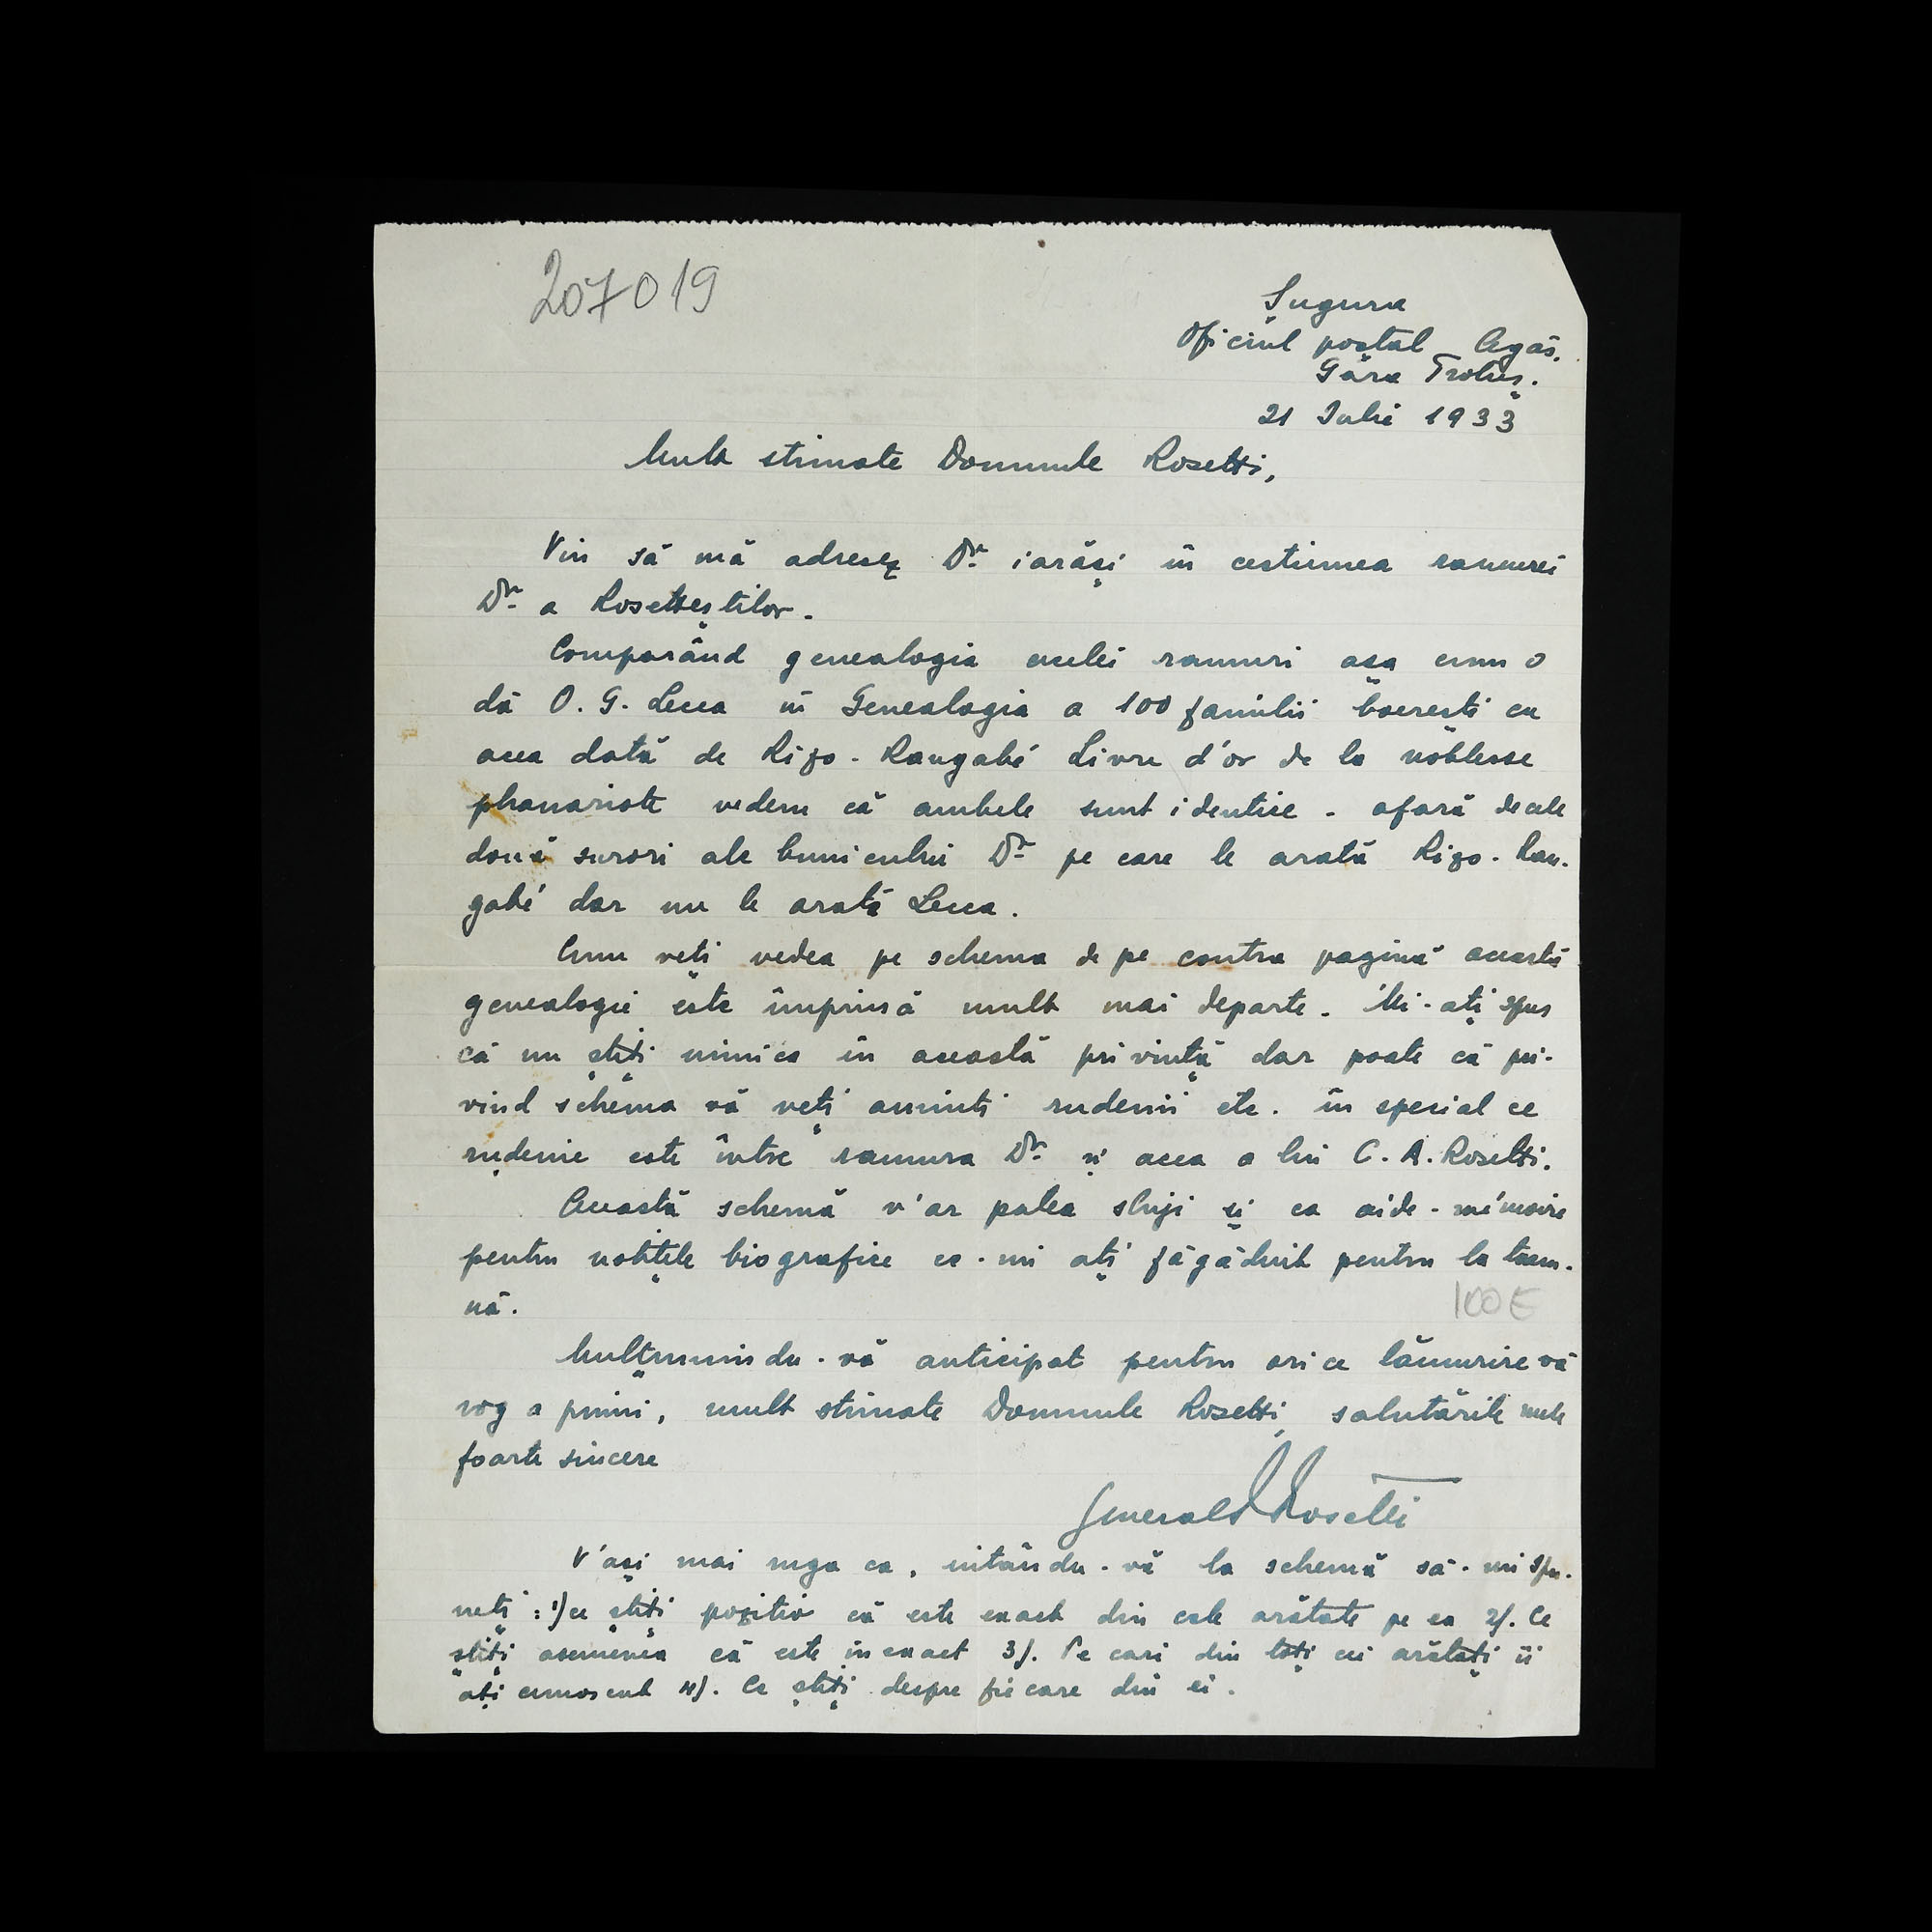 207019
Șugura
Oficiul poștal Agăș.
Gara Trotuș.
21 Iulie 1933
Mult stimate Domnule Rosetti,
Vin să mă adresez Dv. iarăși în cestiunea ramurei
Dv. a Rosetteștilor.
Comparând genealogia acelei ramuri așa cum o
dă O. G. Lecca în Genealogia a 100 familii boerești cu
acea dată de Rizo-Rangabé Livre d'or de la noblesse
phanariote vedem că ambele sunt identice - afară de cele
două surori ale bunicului Dv. pe care le arată Rizo-Ran-
gabé dar nu le arată Lecca.
Cum veți vedea pe schema de pe contra pagină această
genealogie este împinsă mult mai departe. Mi-ați spus
că nu știți nimica în această privință dar poate că pri-
vind schema vă veți aminti rudenii etc. în special ce
rudenie este între ramura Dv. și acea a lui C. A. Rosetti.
Această schemă v'ar putea sluji și ca aide-mémoire
pentru notițele biografice ce-mi ați făgăduit pentru la toam-
nă.
100 €
Mulțumindu-vă anticipat pentru orice lămurire vă
rog a primi, mult stimate Domnule Rosetti, salutările mele
foarte sincere
General R Rosetti
V'ași mai ruga ca, uitându-vă la schemă să-mi spu-
neți: 1) ce știți pozitiv că este exact din cele arătate pe ea 2). Ce
știți asemenea că este inexact 3). Pe cari din toți cei arătați îi
ați cunoscut 4). Ce știți despre fiecare din ei.